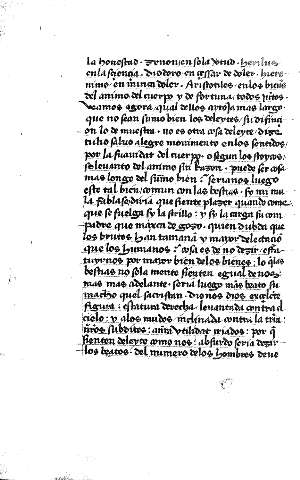 la honestad. Zenon en sola virtud. herilus
en la sçiençia. Diodoro en çessar de doler. hiero
nimo en nunca doler. Aristotiles en los bienes
del animo del cuerpo y de fortuna todos juntos.
veamos agora qual dellos arroja mas largo.
que no sean sumo bien los deleytes su difinici
on lo de muestra. no es otra cosa deleyte. dize
tulio saluo alegre mouimiento en los sentidos
por la suauidat del cuerpo. o segun los stoycos
se leuanto del animo sin razon. puede ser cosa
mas longe del sumo bien: seria nos luego
este tal bien comun con las bestias. sy mi mu
la fabla se diria que siente plazer quando come
que se fuelga sy la sirillo: y sy la carga su com
padre que mueren de gozo. quien dubda que
los brutos han tamaña y mayor delectacio
que los humanos: cosa es de no dezir. esta
tuyr nos por mayor bien de los bienes: lo que las
bestias no sola mente sienten egual de nos
mas mas adelante. seria luego mas beato su
macho quel sacristan. dio nos dios excelente
figura: estatura derecha. leuantada contra el
cielo: y a los mudos inclinada contra la tierra
nuestros subditos: a nuestra vtilidat criados: por que
sienten deleyte como nos: absurdo seria dezir
los beatos. del numero de los hombres deue